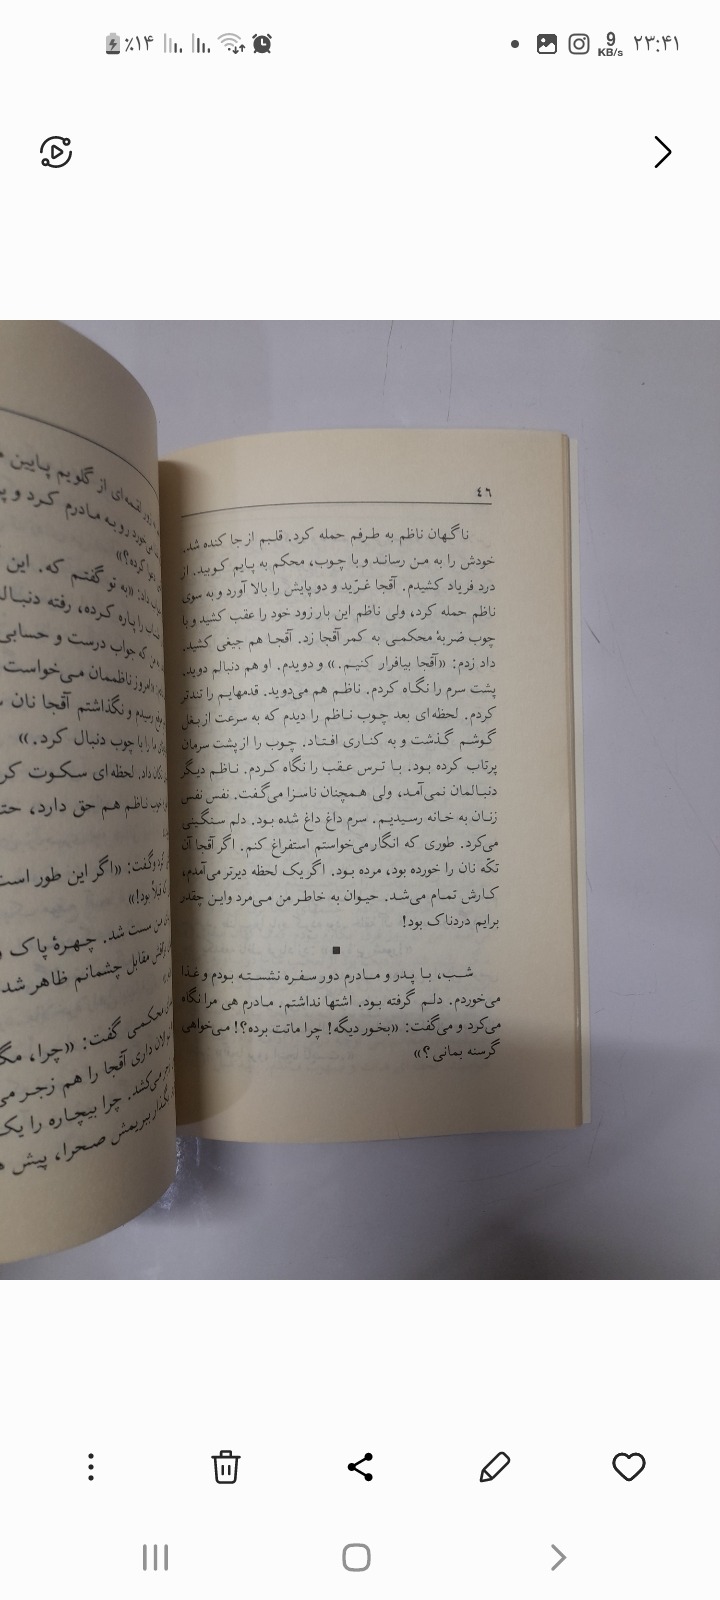 ٪۱۴
9
KB/s
۲۳:۴۱
٤٦
ناگهان ناظم به طرفم حمله کرد. قلبم از جا کنده شد.
خودش را به من رساند و با چوب، محکم به پایم کوبید. از
درد فریاد کشیدم. آقجا غرّید و دو پایش را بالا آورد و به سوی
ناظم حمله کرد، ولی ناظم این بار زود خود را عقب کشید و با
چوب ضربهٔ محکمی به کمر آقجا زد. آقجا هم جیغی کشید.
داد زدم: «آقجا بیا فرار کنیم.» و دویدم. او هم دنبالم دوید.
پشت سرم را نگاه کردم. ناظم هم می‌دوید. قدمهایم را تندتر
کردم. لحظه‌ای بعد چوب ناظم را دیدم که به سرعت از بغل
گوشم گذشت و به کناری افتاد. چوب را از پشت سرمان
پرتاب کرده بود. با ترس عقب را نگاه کردم. ناظم دیگر
دنبالمان نمی‌آمد، ولی همچنان ناسزا می‌گفت. نفس نفس
زنان به خانه رسیدیم. سرم داغ داغ شده بود. دلم سنگینی
می‌کرد. طوری که انگار می‌خواستم استفراغ کنم. اگر آقجا آن
تکّه نان را خورده بود، مرده بود. اگر یک لحظه دیرتر می‌آمدم،
کارش تمام می‌شد. حیوان به خاطر من می‌مرد و این چقدر
برایم دردناک بود!
شب، با پدر و مادرم دور سفره نشسته بودم و غذا
می‌خوردم. دلم گرفته بود. اشتها نداشتم. مادرم هی مرا نگاه
می‌کرد و می‌گفت: «بخور دیگه! چرا ماتت برده؟! می‌خواهی
گرسنه بمانی؟»
لقمه‌ای از گلویم پایین
رو به مادرم کرد و
کرده؟»
داد: «به تو گفتم که. این
را پاره کرده، رفته
که جواب درست و حسابی
امروز ناظممان می‌خواست
رسیدم و نگذاشتم آقجا نان
ما را با چوب دنبال کرد.»
داد. لحظه‌ای سکوت
ناظم هم حق دارد،
گفت: «اگر این طور است
بود!»
سست شد. چهرهٔ پاک
مقابل چشمانم ظاهر
محکمی گفت: «چرا،
داری آقجا را هم زجر
می‌کشد. چرا بیچاره را یک
ببریمش صحرا، پیش